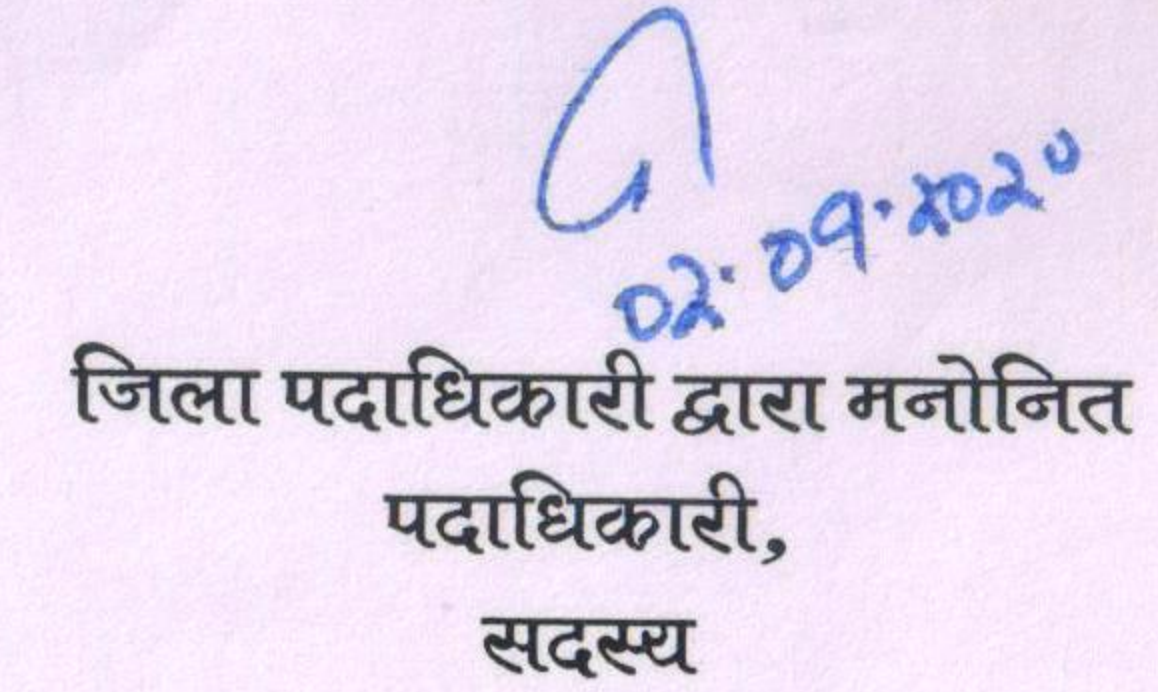 02.09.2020
जिला पदाधिकारी द्वारा मनोनित
पदाधिकारी,
सदस्य